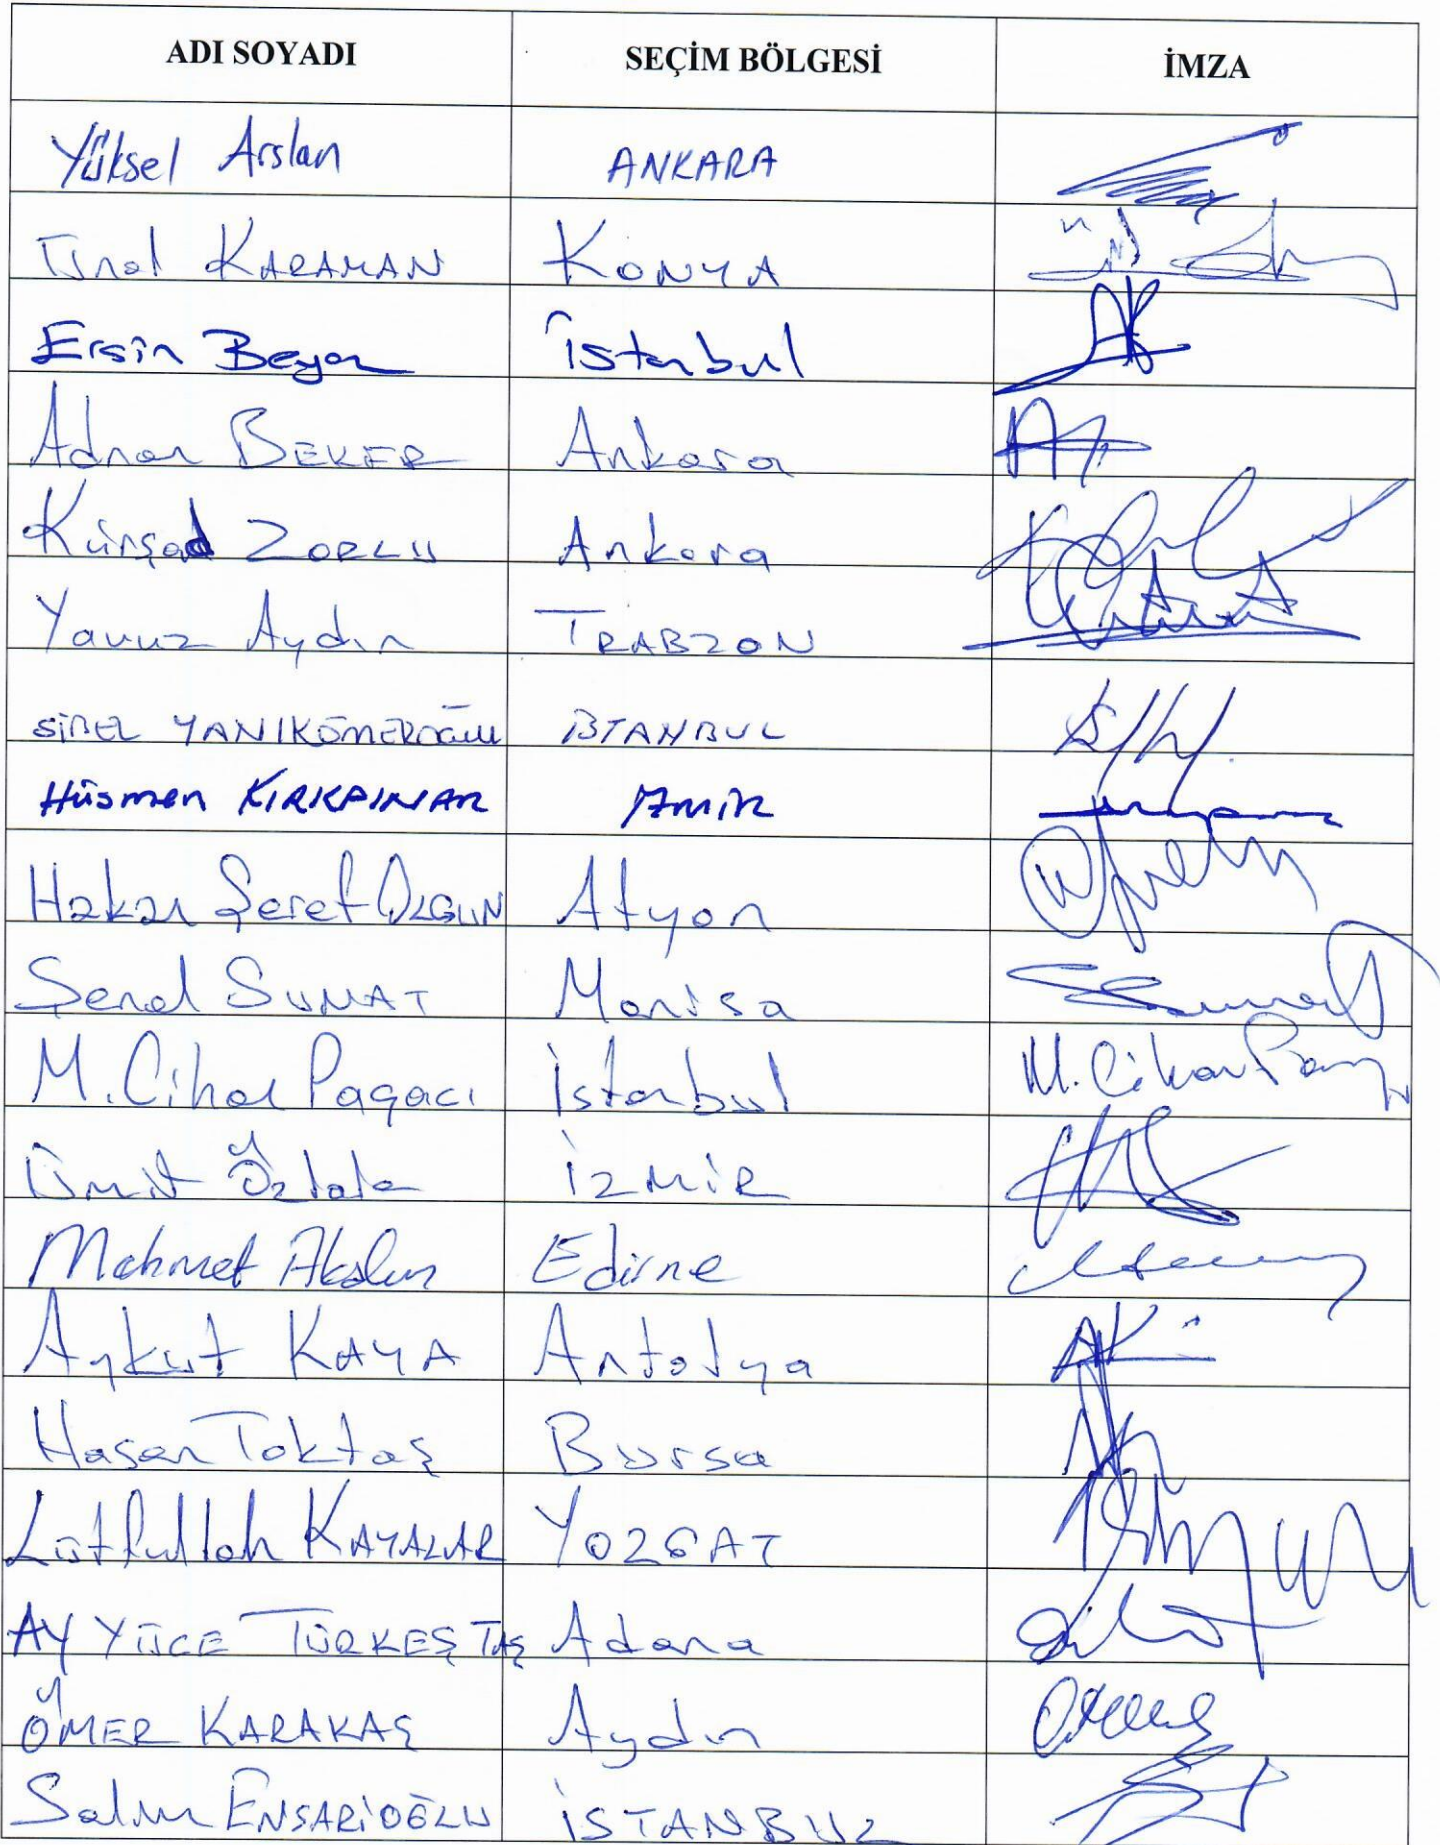 ADI SOYADI SEÇİM BÖLGESİ İMZA
Yüksel Arslan ANKARA
Ünal KARAMAN KONYA
Ersin Beyaz İstanbul
Adnan BEKER Ankara
Kürşad ZORLU Ankara
Yavuz Aydın TRABZON
SİBEL YANIKÖMEROĞLU İSTANBUL
Hüsmen KIRKPINAR İZMİR
Hakan Şeref OLGUN Afyon
Şenol SUNAT Manisa
M. Cihan Paçacı İstanbul M. Cihan
Ümit Özlale İZMİR
Mehmet Akalın Edirne
Aykut KAYA Antalya
Hasan Toktaş Bursa
Lütfullah KAYALAR YOZGAT
AYYÜCE TÜRKEŞ TAŞ Adana
ÖMER KARAKAŞ Aydın
Salim ENSARİOĞLU İSTANBUL